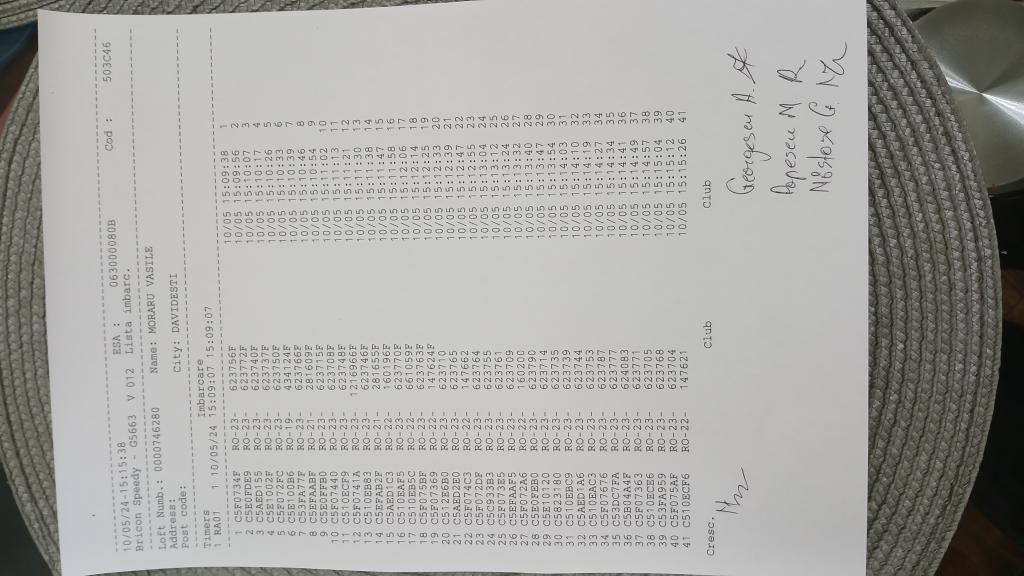 10/05/24-15:15:38 ESA : 063000080B Cod : 503C46
Bricon Speedy - G5663 V 012 Lista imbarc.
Loft Numb.: 0000746280 Name: MORARU VASILE
Address: City: DAVIDESTI
Post code:
Timers Imbarcare
1 RA01 1 10/05/24 15:09:07 15:09:07
1 C5F0734F RO-23- 623756F 10/05 15:09:38 1
2 C5E0FDE9 RO-23- 623772F 10/05 15:09:56 2
3 C5AED155 RO-23- 623740F 10/05 15:10:07 3
4 C5E1002F RO-23- 623737F 10/05 15:10:17 4
5 C5F072FC RO-23- 623750F 10/05 15:10:26 5
6 C5E100B6 RO-19- 434124F 10/05 15:10:33 6
7 C53FA77F RO-23- 623766F 10/05 15:10:39 7
8 C5EFAABF RO-21- 281609F 10/05 15:10:46 8
9 C5E0FFB3 RO-23- 623715F 10/05 15:10:54 9
10 C5F07440 RO-23- 623708F 10/05 15:11:02 10
11 C510ECF9 RO-23- 623748F 10/05 15:11:13 11
12 C5F0741A RO-23- 1216966F 10/05 15:11:21 12
13 C510EB83 RO-23- 623746F 10/05 15:11:30 13
14 C5EFAB2F RO-21- 281655F 10/05 15:11:38 14
15 C5AED1C3 RO-22- 160196F 10/05 15:11:47 15
16 C510EAF5 RO-23- 623770F 10/05 15:11:58 16
17 C510EB5C RO-22- 661095F 10/05 15:12:06 17
18 C5F075BF RO-23- 623763F 10/05 15:12:14 18
19 C5F0736B RO-22- 147624F 10/05 15:12:25 19
20 C512E6B0 RO-23- 623710 10/05 15:12:33 20
21 C5AED2E0 RO-23- 623765 10/05 15:12:39 21
22 C5F074C3 RO-22- 147662 10/05 15:12:47 22
23 C5F072DF RO-23- 623764 10/05 15:12:55 23
24 C5C933B3 RO-23- 623755 10/05 15:13:04 24
25 C5F073E5 RO-23- 623761 10/05 15:13:12 25
26 C5EFAAF5 RO-23- 623709 10/05 15:13:24 26
27 C5F072A6 RO-22- 160207 10/05 15:13:32 27
28 C5E0FEB0 RO-23- 623790 10/05 15:13:40 28
29 C5E10120 RO-23- 623714 10/05 15:13:47 29
30 C5823180 RO-23- 623735 10/05 15:13:54 30
31 C510EBC9 RO-23- 623739 10/05 15:14:03 31
32 C5AED1A6 RO-23- 623744 10/05 15:14:11 32
33 C510EAC3 RO-23- 623753 10/05 15:14:19 33
34 C5F0757A RO-23- 623787 10/05 15:14:27 34
35 C53DC7FA RO-23- 623777 10/05 15:14:34 35
36 C5B04A4F RO-23- 624083 10/05 15:14:41 36
37 C5F07363 RO-23- 623771 10/05 15:14:49 37
38 C510ECE8 RO-23- 623705 10/05 15:14:57 38
39 C53FA959 RO-23- 623768 10/05 15:15:04 39
40 C5F075AF RO-23- 623704 10/05 15:15:12 40
41 C510ECF6 RO-22- 147621 10/05 15:15:26 41
Cresc. Club Club
Georgescu A.
Popescu M.
Năstase G.